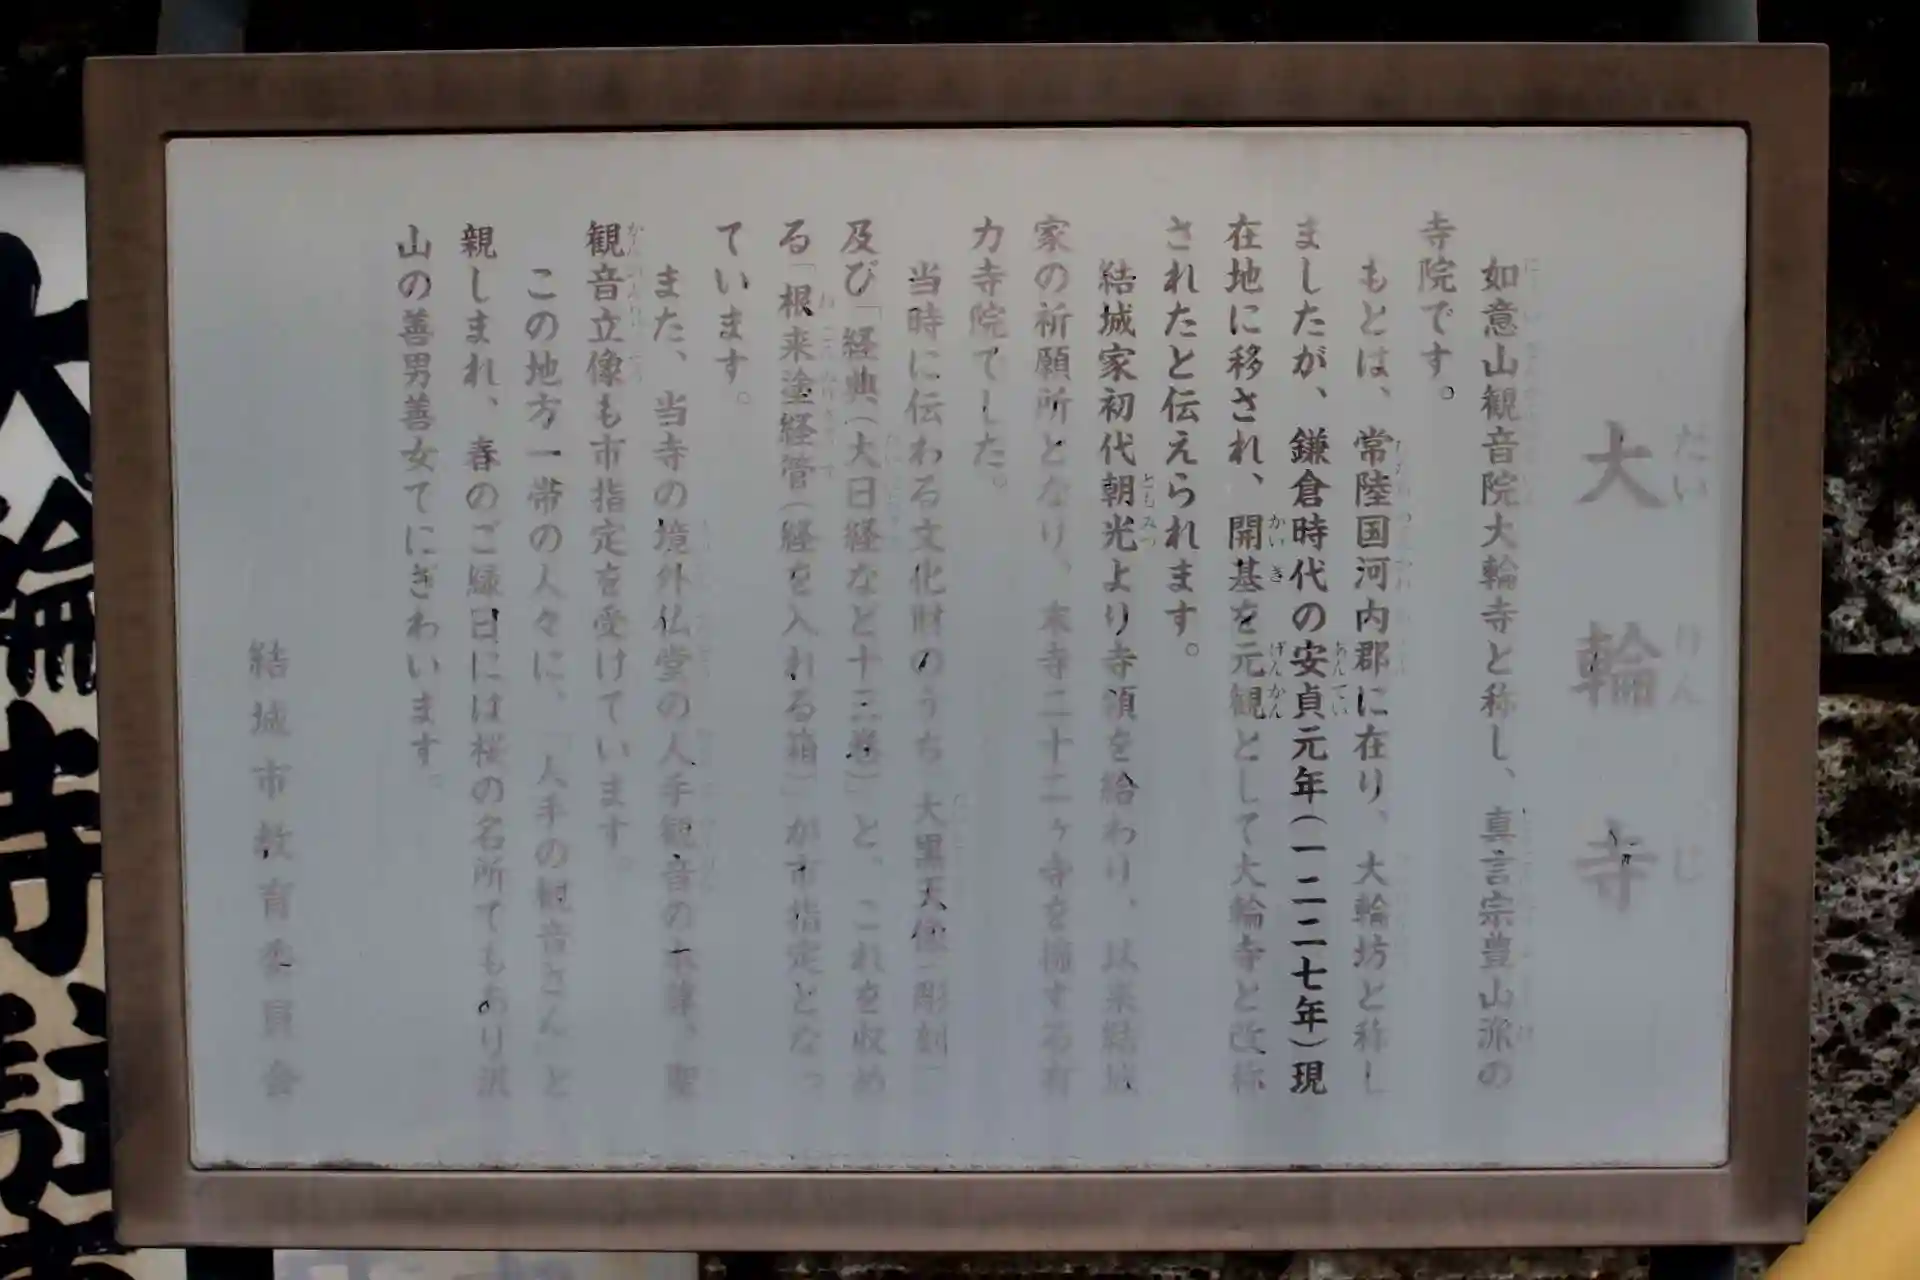 大輪寺
如意山観音院大輪寺と称し、真言宗豊山派の
寺院です。
もとは、常陸国河内郡に在り、大輪坊と称し
ましたが、鎌倉時代の安貞元年(一二二七年)現
在地に移され、開基を元観として大輪寺と改称
されたと伝えられます。
結城家初代朝光より寺領を給わり、以来結城
家の祈願所となり、末寺二十二ヶ寺を擁する有
力寺院でした。
当時に伝わる文化財のうち「大黒天像」(彫刻)
及び「経典(大日経など十三巻)」と、これを収め
る「根来塗経管(経を入れる箱)」が市指定となっ
ています。
また、当寺の境外仏堂の人手観音の本尊、聖
観音立像も市指定を受けています。
この地方一帯の人々に、「人手の観音さん」と
親しまれ、春のご縁日には桜の名所でもあり沢
山の善男善女でにぎわいます。
結城市教育委員会
大輪寺駐車